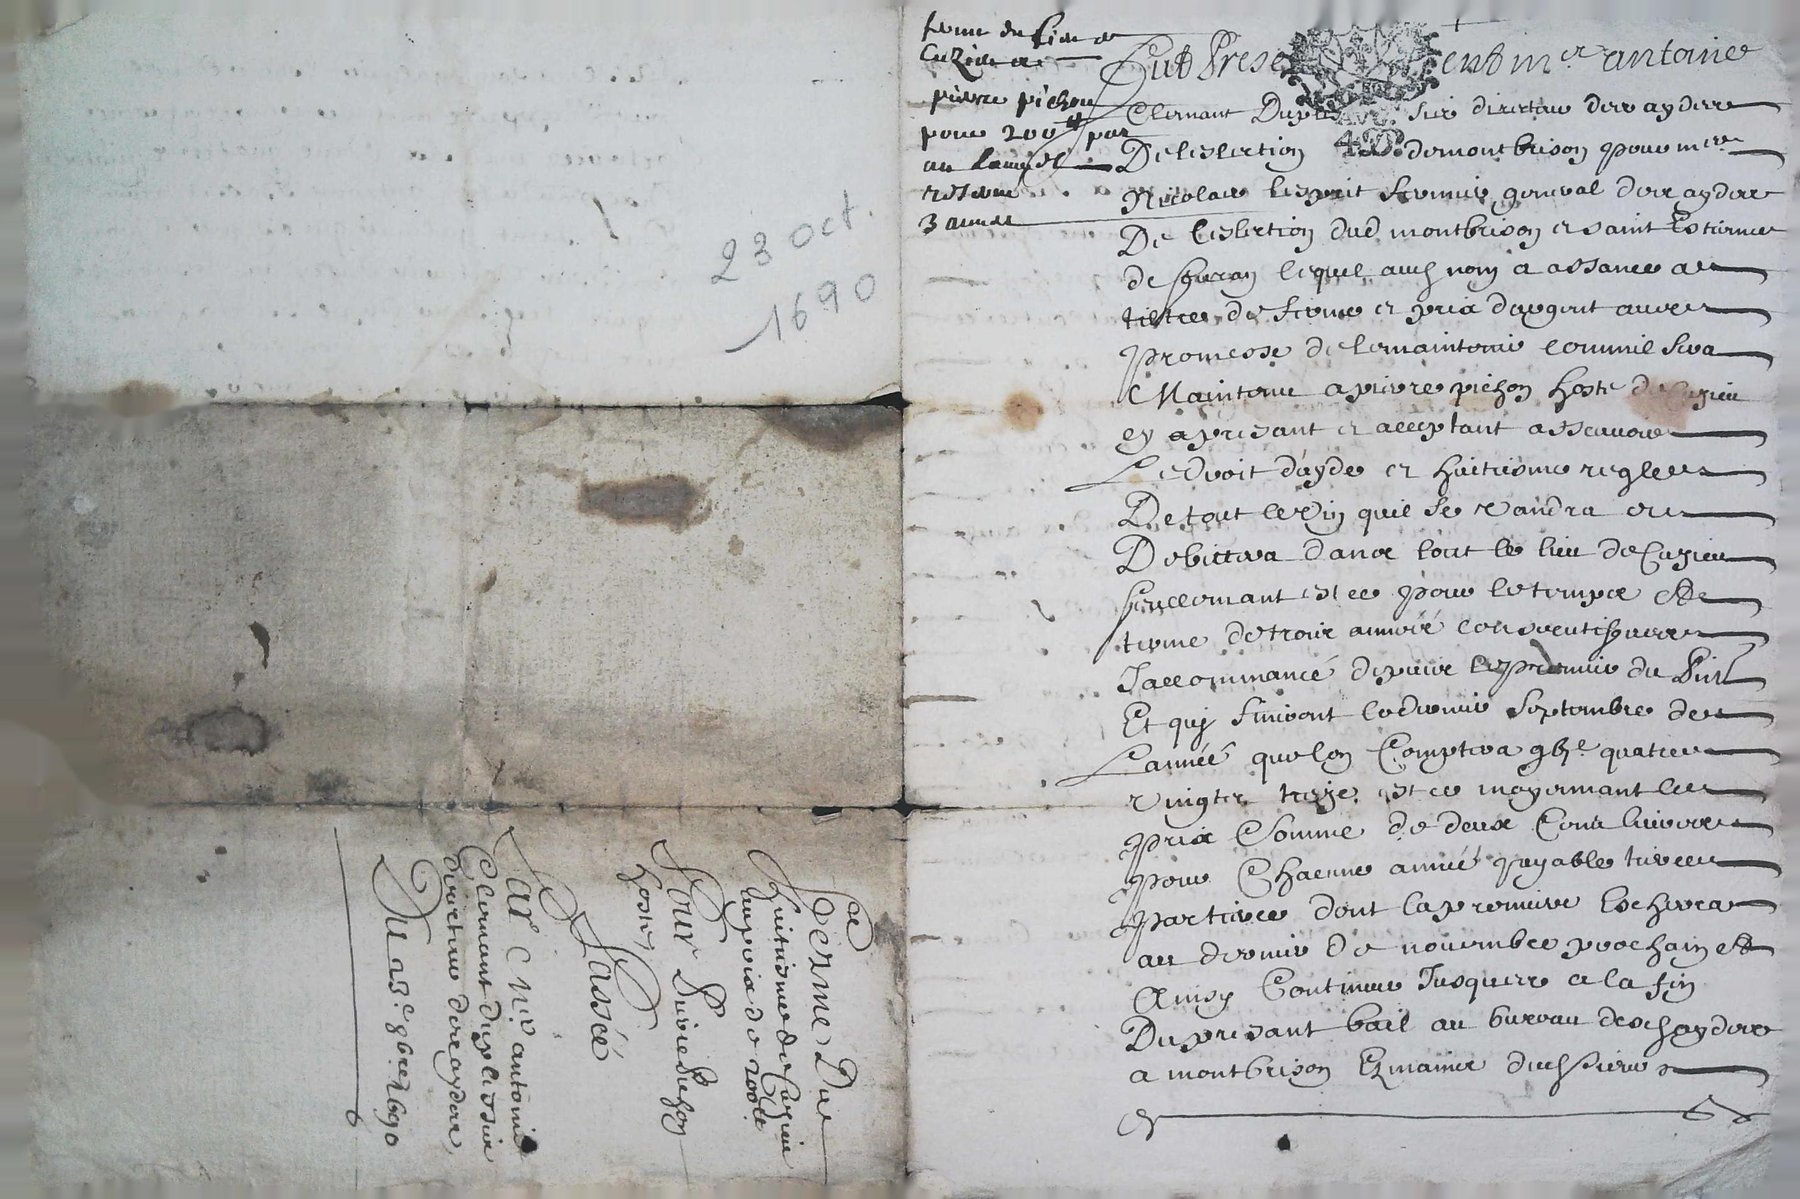 23 oct.
1690
ferme du lieu de
Cuzieu a
pierre pichon
pour 200 ll par
an
reserve
3 années
Fut Prese ent mr antoine
Clemant Duplessis sieur directeur des aydes
De leslection 4 D. de montbrison pour mre
Nicolas lesprit fermier general des aydes
De leslection dud montbrison et saint Estienne
de furan lequel aud nom a assancé a
tiltre de ferme et prix dargent avec
promesse de le maintenir comme il sera
Maintenu a pierre pichon hoste de Cuzieu
cy apresant et acceptant asscavoir
Le droit dayde et huitiesme reglee
De tout le vin quil se vandra et
Debittera dans tout le lieu de Cuzieu
seullemant et ce pour le temps et
terme de trois années consecutifves
Ja commancé depuis le premier du
Et quj finiront le dernier septembre de
Lannéé que lon Comptera gbic quatre
vingtz treze et ce moyennant le
prix Somme de deux Cent livres
pour Chacune année payable
par dont la premiere
au dernier de novembre prochain et
Ainsy Continuer Jusques a la fin
Du presant bail au bureau desd aydes
a montbrison Ez mains dud sieur
Ferme Du
huitiesme de Cuzieu
au prix de 200 ll
Pour Pierre Pichon
hoste,
Passée
Par Mr antoine
Clemant duplessis
directeur des aydes,
Du 23e 8bre 1690